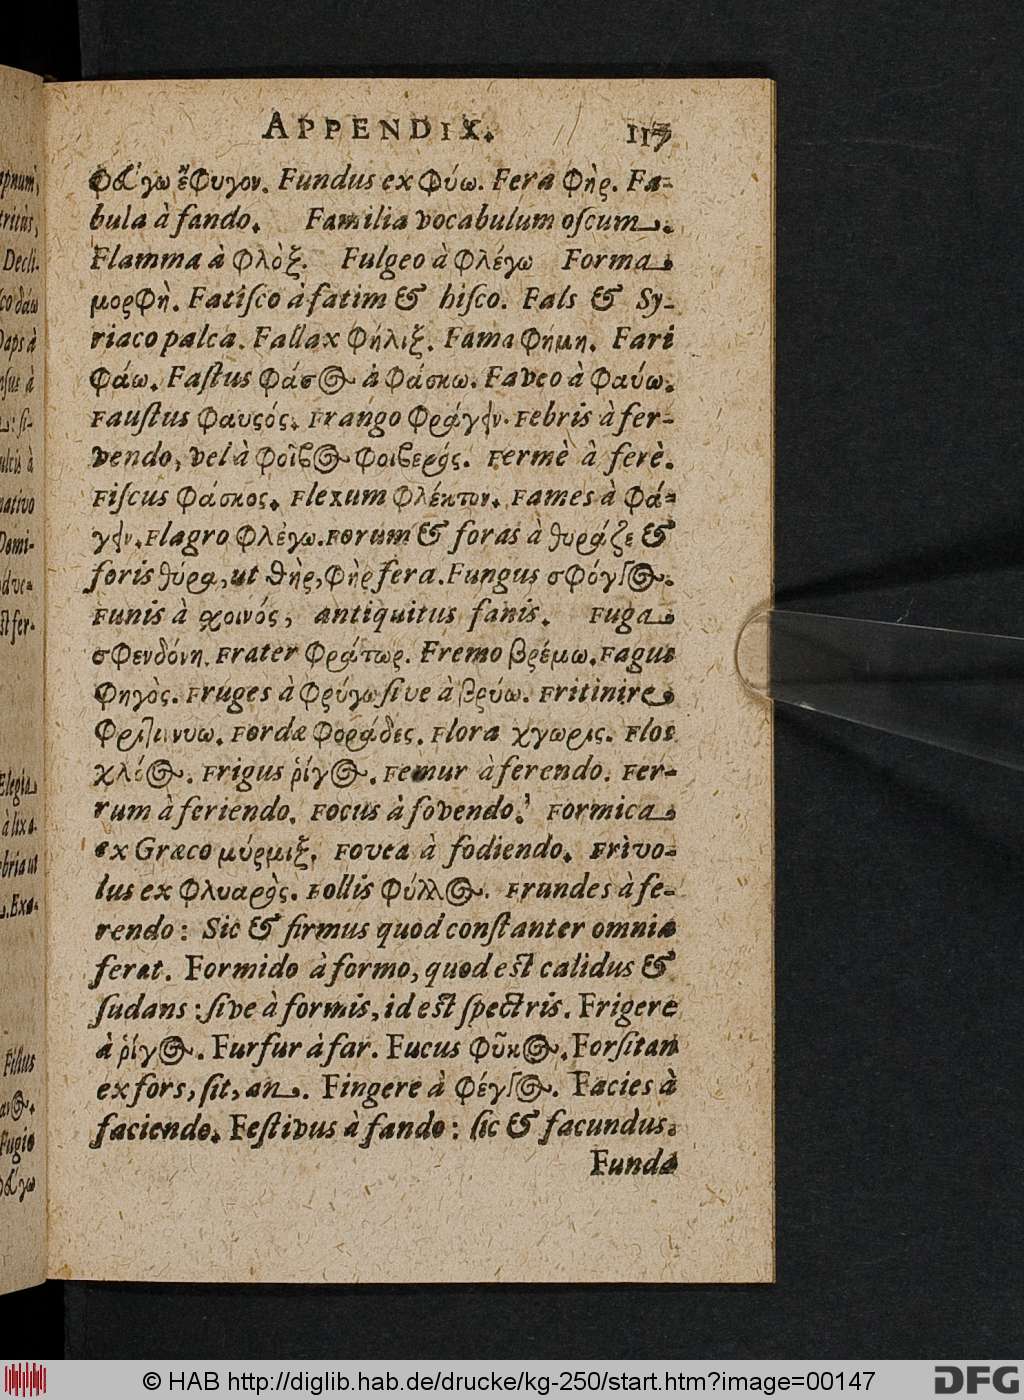 APPENDIX. 113
φεύγω ἔφυγον. Fundus ex φύω. Fera φὴρ. Fa-
bula à fando. Familia vocabulum oſcum.
Flamma à φλὸξ. Fulgeo à φλέγω Forma
μορφὴ. Fatiſco à fatim & hiſco. Fals & Sy-
riaco palca. Fallax φήλιξ. Fama φήμη. Fari
φάω. Faſtus φάσος à φάσκω. Faveo à φαύω.
Fauſtus φαυςός. Frango φράγειν. Febris à fer-
vendo, vel à φοῖβος φοιβερός. Fermè à ferè.
Fiſcus φάσκος. Flexum φλέκτον. Fames à φά-
γειν. Flagro φλέγω. Forum & foras à θυράζε &
foris θύρα, ut θὴρ, φὴρ fera. Fungus σφόγγος.
Funis à σχοινός, antiquitus fanis. Fuga
σφενδόνη. Frater φράτωρ. Fremo βρέμω. Fagus
φηγὸς. Fruges à φρύγω ſive à βρύω. Fritinire
φριττινύω. Fordæ φοράδες. Flora χγωρις. Flos
χλόος. Frigus ῥίγος. Femur à ferendo. Fer-
rum à feriendo. Focus à fovendo. Formica
ex Græco μύρμιξ. Fovea à fodiendo. Frivo-
lus ex φλυαρὸς. Follis φύλλος. Frundes à fe-
rendo: Sic & firmus quod conſtanter omnia
ferat. Formido à formo, quod eſt calidus &
ſudans: ſive à formis, id eſt ſpectris. Frigere
à ῥίγος. Furfur à far. Fucus φῦκος. Forſitan
ex fors, ſit, an. Fingere à φέγγος. Facies à
faciendo. Feſtivus à fando: ſic & facundus.
Funda
apnum,
triùs,
Decli-
ſco δάω
Daps à
ulcis à
nativo
Domi-
eſt fer-
Elegia
à lix a.
ebria ut
Exo-
Fiſſus
Fugio
φεύγω
© HAB http://diglib.hab.de/drucke/kg-250/start.htm?image=00147
DFG